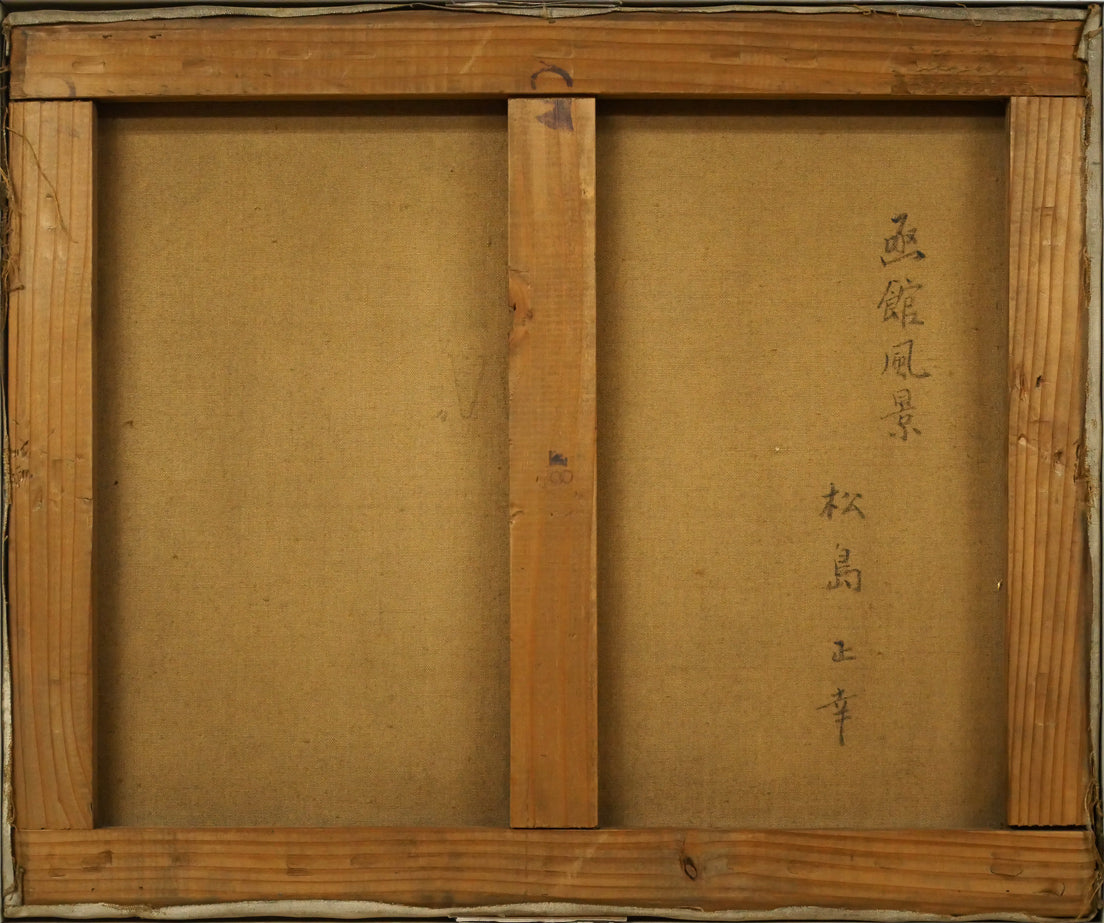 函館風景
松島正幸